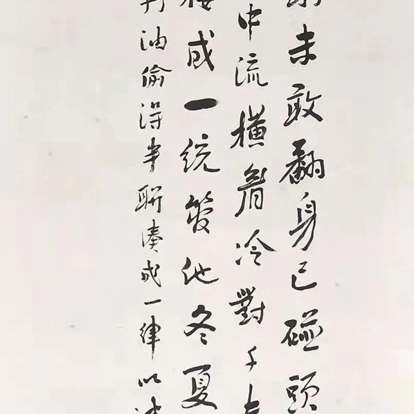 未敢翻身已碰頭
中流橫眉冷對千
樓成一統管他冬夏
打油偷得半聯湊成一律以